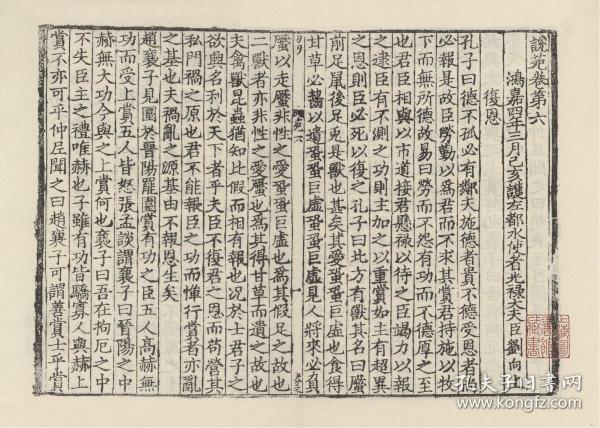 說苑卷第六
鴻嘉四年三月己亥護左都水使者光祿大夫臣劉向上
復恩
孔子曰德不孤必有鄰夫施德者貴不德受恩者尚
必報是故臣勞勤以爲君而不求其賞君持施以牧
下而無所德故易曰勞而不怨有功而不德厚之至
也君臣相與以市道接君懸祿以待之臣竭力以報
之逮臣有不測之功則主加之以重賞如主有超異
之恩則臣必死以復之孔子曰北方有獸其名曰蟨
前足鼠後足兎是獸也甚矣其愛蛩蛩巨虛也食得
甘草必齧以遺蛩蛩巨虛蛩蛩巨虛見人將來必負
蟨以走蟨非性之愛蛩蛩巨虛也爲其假足之故也
二獸者亦非性之愛蟨也爲其得甘草而遺之故也
夫禽獸昆蟲猶知比假而相有報也況於士君子之
欲興名利於天下者乎夫臣不復君之恩而苟營其
私門禍之源也君不能報臣之功而憚行賞者亦亂
之基也夫禍亂之源基由不報恩生矣
趙襄子見圍於晉陽罷圍賞有功之臣五人高赫無
功而受上賞五人皆怒張孟談謂襄子曰晉陽之中
赫無大功今與之上賞何也襄子曰吾在拘厄之中
不失臣主之禮唯赫也子雖有功皆驕寡人與赫上
賞不亦可乎仲尼聞之曰趙襄子可謂善賞士乎賞
孔夫子旧书网
www.kongfz.com